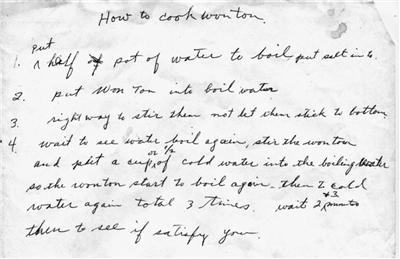 How to cook wonton.
1. Put half of pot of water to boil put salt in to.
2. put Won Ton into boil water
3. right way to stir them not let them stick to bottom
4. wait to see water boil again, stir the wonton
and put a cup, or 1/2 of cold water into the boiling water
so the wonton start to boil again. then cold
water again total 3 times. wait 2 to 3
then to see if satisfy you.